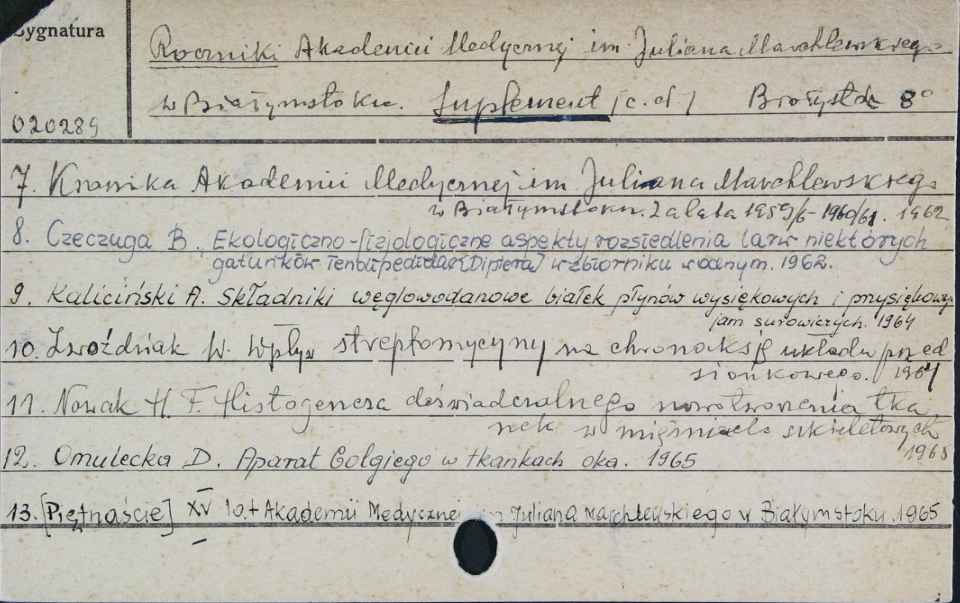 Sygnatura
020289
Roczniki Akademii Medycznej im. Juliana Marchlewskiego
w Białymstoku. Suplement /c.d/ Białystok 8°
7. Kronika Akademii Medycznej im. Juliana Marchlewskiego
w Białymstoku. Za lata 1959/6-1960/61. 1962
8. Czeczuga B. Ekologiczno-fizjologiczne aspekty rozsiedlenia larw niektórych
gatunków Tendipedidae [Diptera] w zbiorniku wodnym. 1962.
9. Kaliciński A. Składniki węglowodanowe białek płynów wysiękowych i przysiękowych
jam surowiczych. 1964
10. Zwoździak W. Wpływ streptomycyny na chronaksję układu przed
sionkowego. 1964
11. Nowak H. F. Histogeneza doświadczalnego nowotworzenia tka
nek w mięśniach szkieletowych
1965
12. Omulecka D. Aparat Golgiego w tkankach oka. 1965
13. [Piętnaście] XV lat Akademii Medycznej im Juliana Marchlewskiego w Białymstoku. 1965